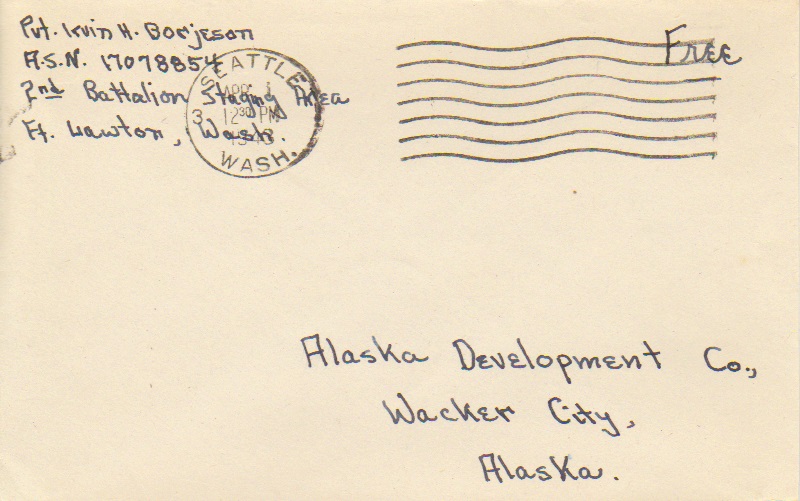 Pvt. Irvin H. Borjeson
A.S.N. 17078854
2nd Battalion Staging Area
Ft. Lawton, Wash.
SEATTLE
APR 1
3 12 30 PM
WASH.
Free
Alaska Development Co.,
Wacker City,
Alaska.